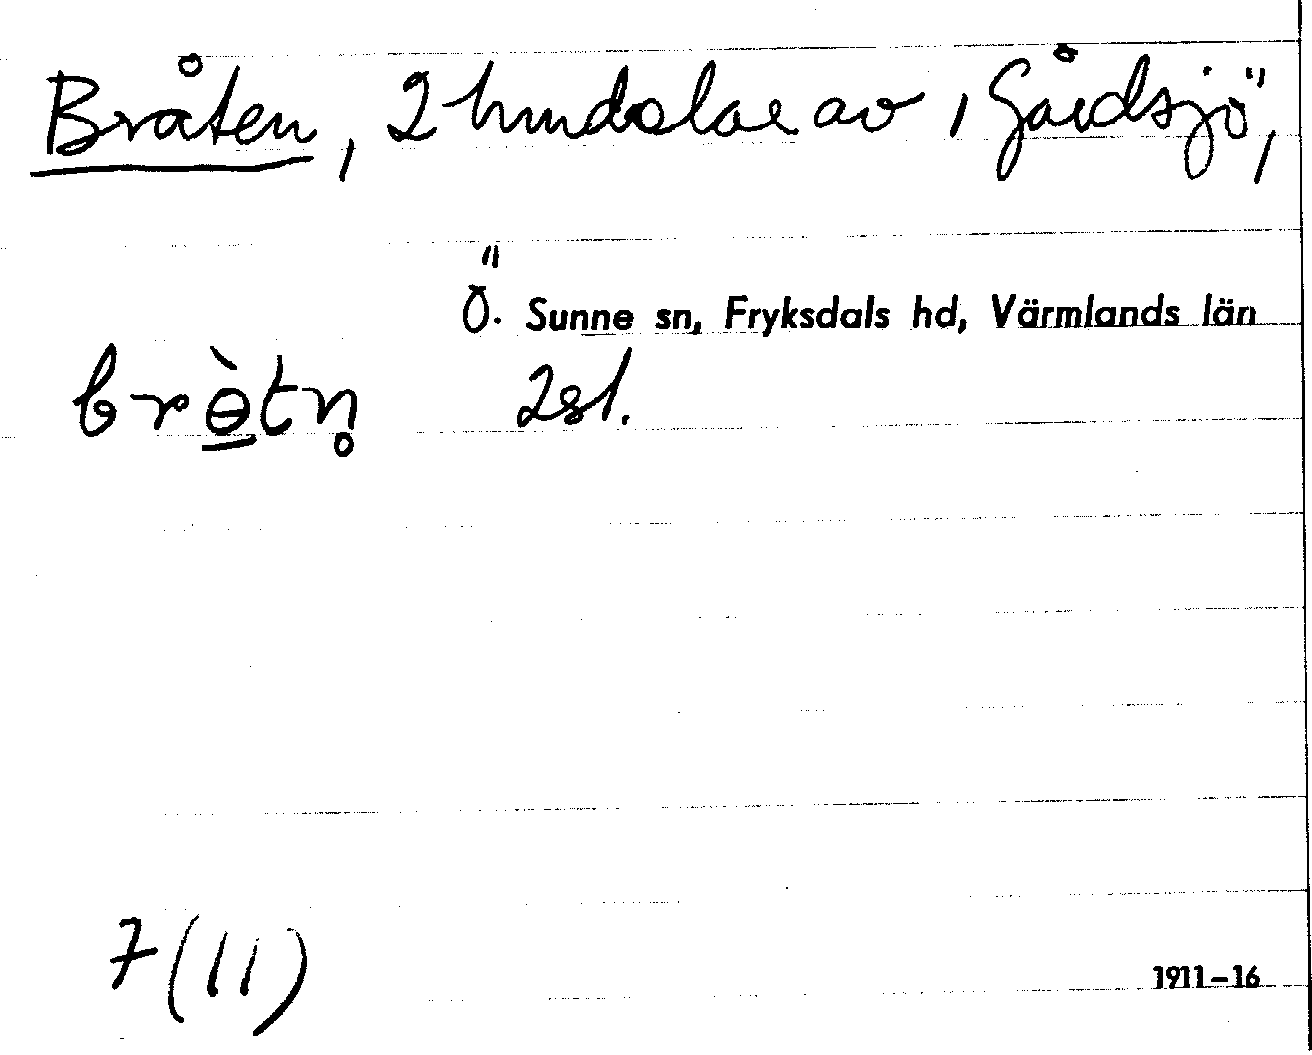 Bråten, 2 hmdslae av 1 Gårdsjö",
Ö. Sunne sn, Fryksdals hd, Värmlands län
brɵ̀tn̥ 2sl.
7(11)
1911–16